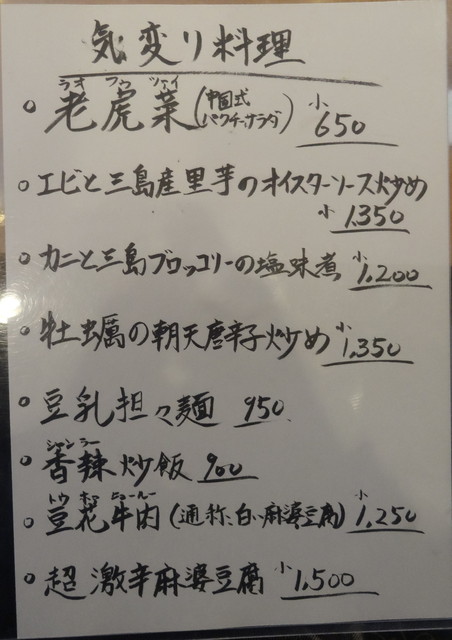 気変り料理
ラオ フゥ ツァイ
○老虎菜(中国式パクチーサラダ) 小650
○エビと三島産里芋のオイスターソース炒め
小1,350
○カニと三島ブロッコリーの塩味煮 小1,200
○牡蠣の朝天唐辛子炒め 小1,350
○豆乳担々麺 950
シャンラー
○香辣炒飯 900
○豆花牛肉(通称、白い麻婆豆腐) 小1,250
○超激辛麻婆豆腐 小1,500